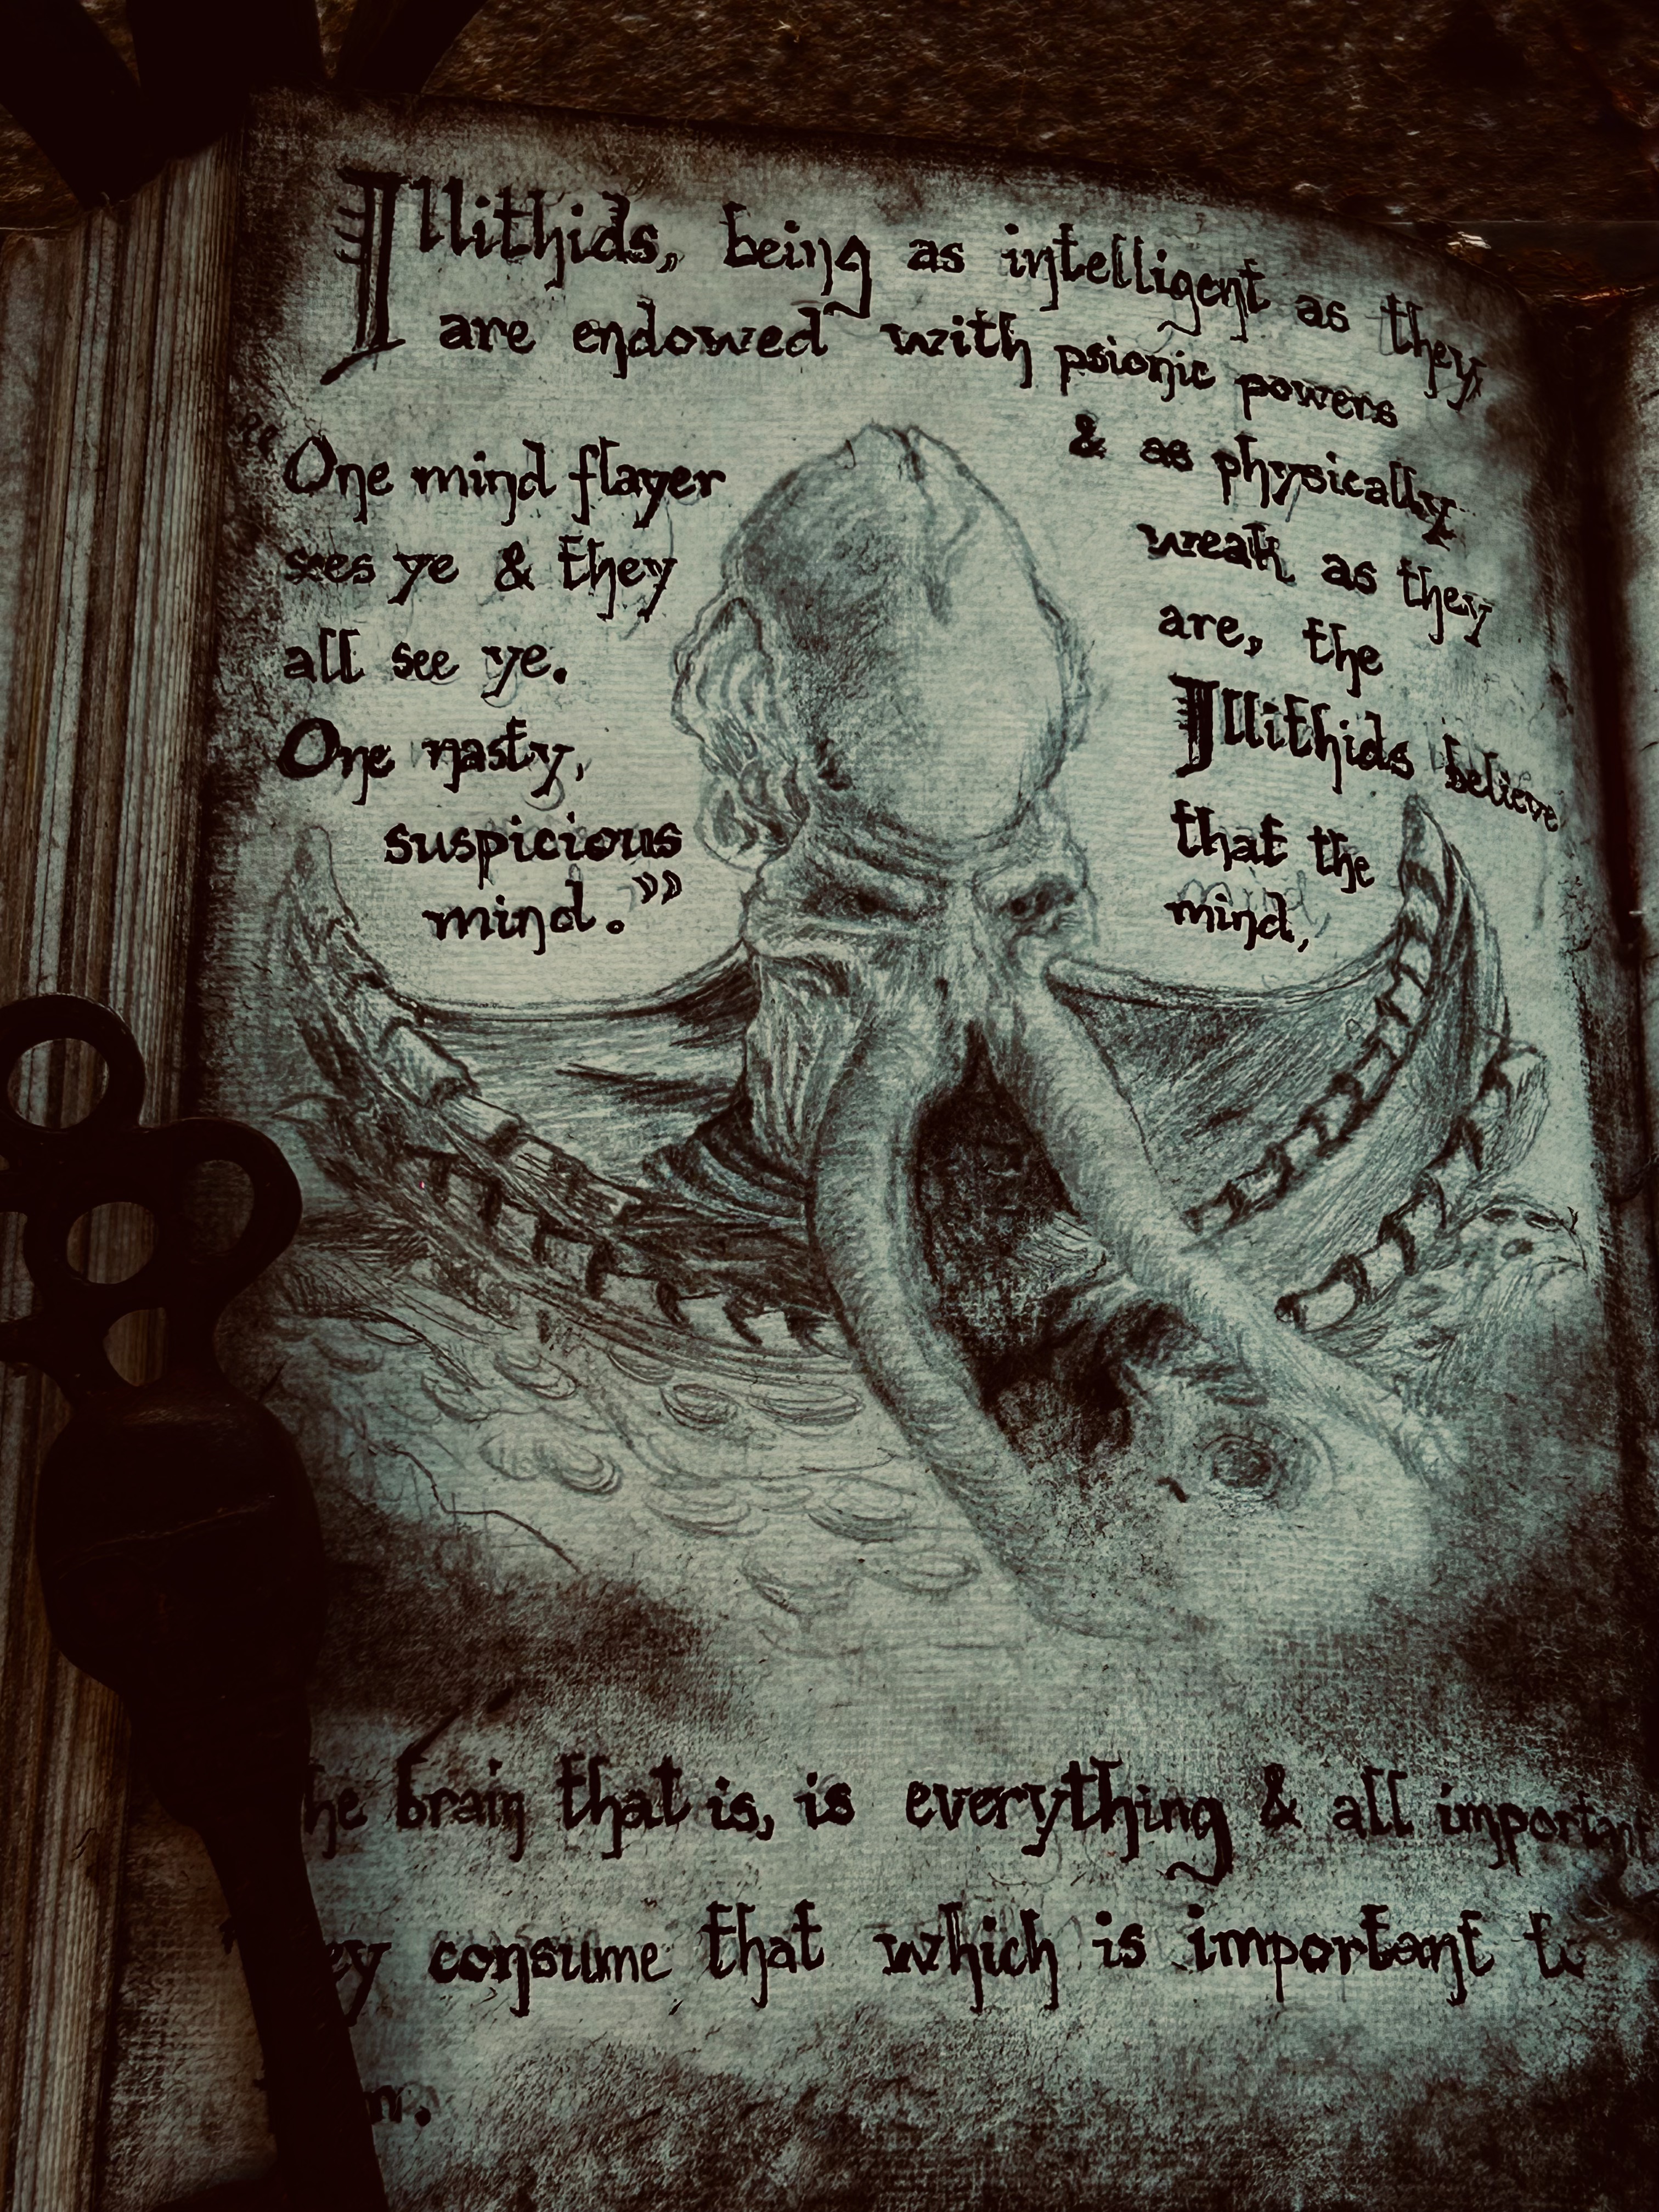 Illithids, being as intelligent as they
are endowed with psionic powers
& as physically
weak as they
are, the
Illithids believe
that the
mind,
“One mind flayer
sees ye & they
all see ye.
One nasty,
suspicious
mind.”
he brain that is, is everything & all important
ey consume that which is important to